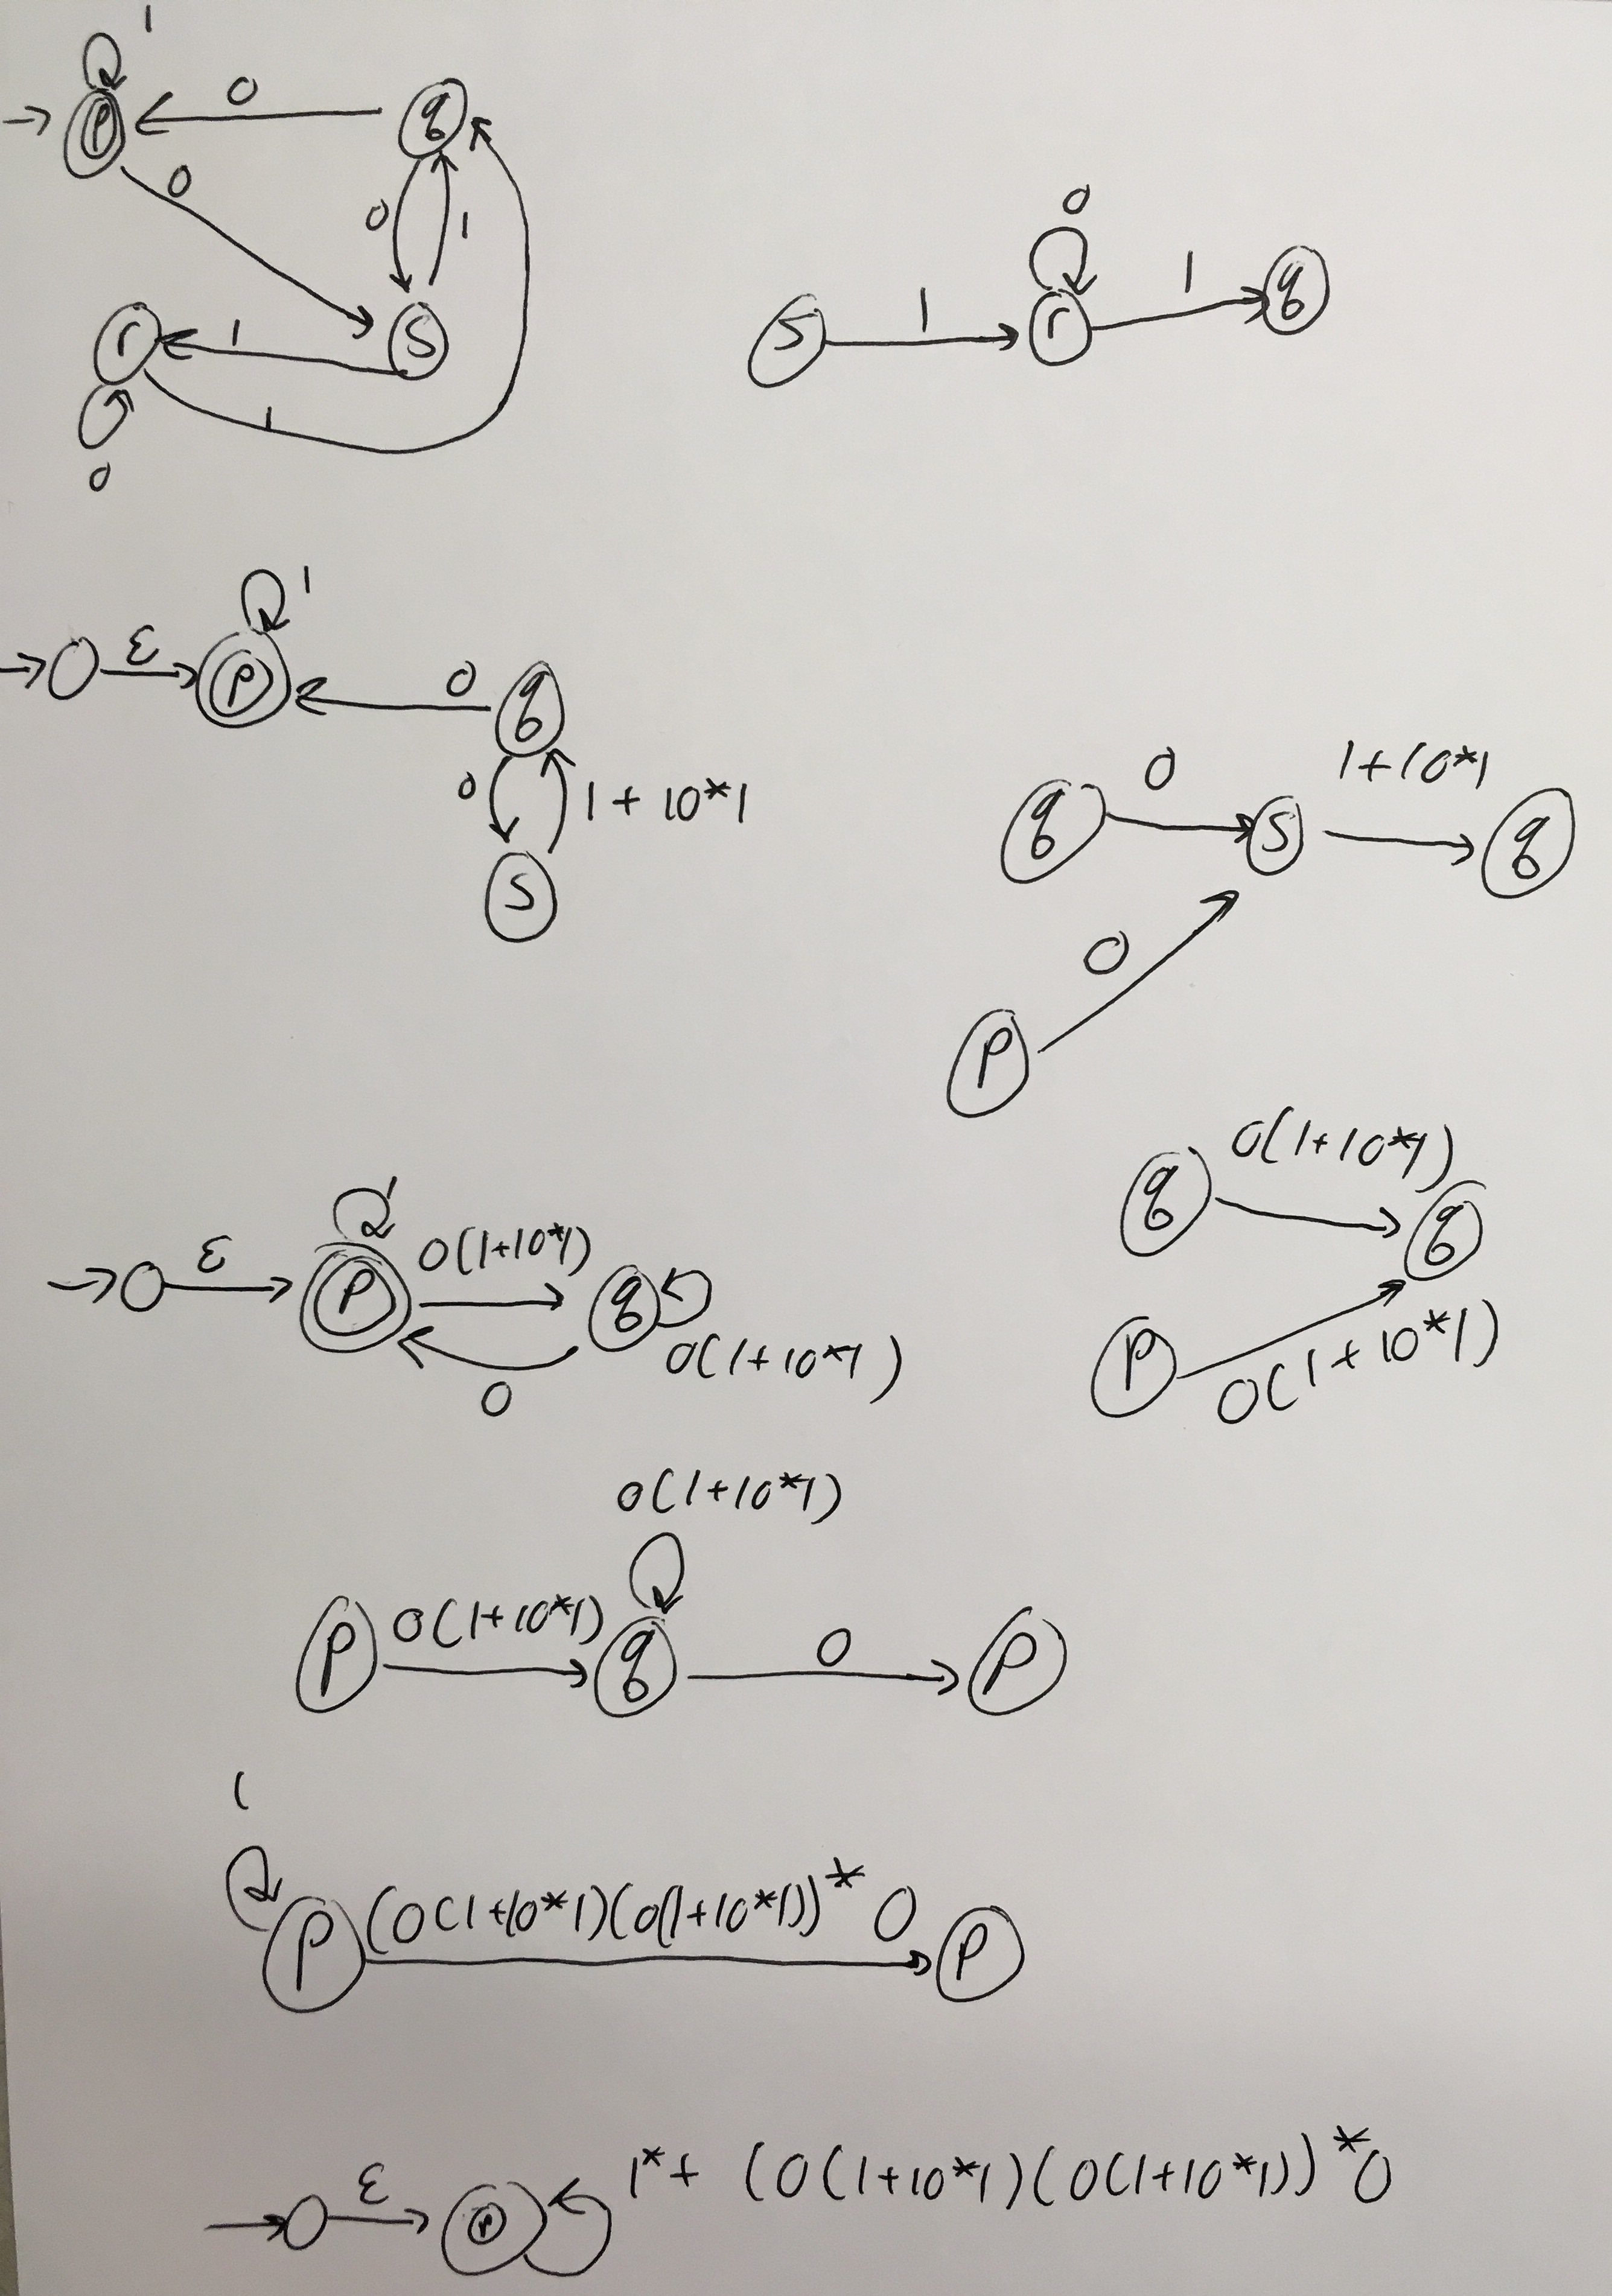 1
0
p
q
0
0
1
0
r
1
s
1
0
s
1
r
1
q
0
1
ε
p
0
q
0
1+10*1
s
0
1+10*1
q
s
q
0
p
0(1+10*1)
q
q
p
0(1+10*1)
1
ε
p
0(1+10*1)
q
0(1+10*1)
0
0(1+10*1)
p
0(1+10*1)
q
0
p
1
p
(0(1+10*1)(0(1+10*1))* 0
p
ε
p
1*+ (0(1+10*1)(0(1+10*1))*0